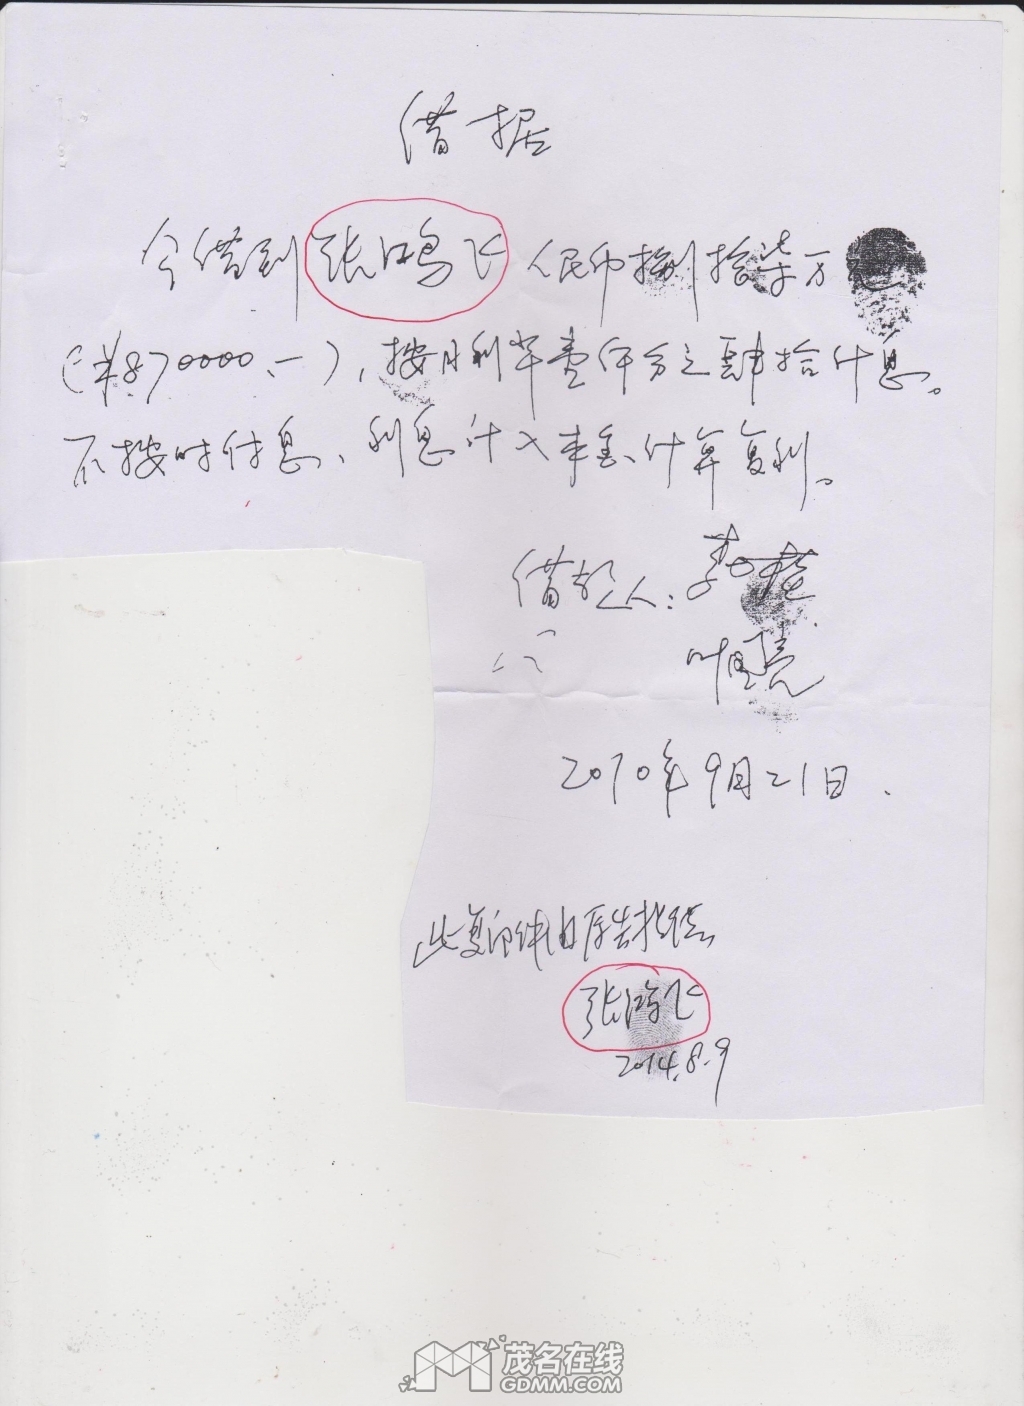 借据
今借到张鸿飞人民币捌拾柒万元
(¥870000.—),按月利率壹仟分之肆拾计息。
不按时付息、利息计入本金、计算复利。
借款人:李
叶
2010年9月21日.
此复印件由原告提供
张鸿飞
2014.8.9
茂名在线
GDMM.COM